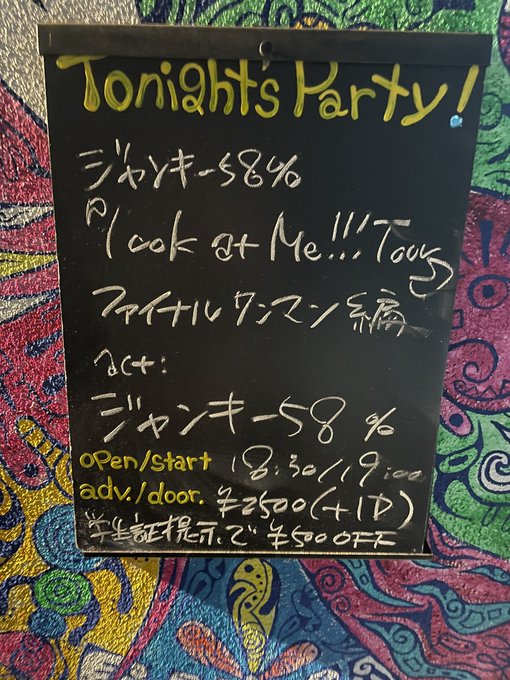 Tonight's Party!
ジャンキー58%
『look at Me!!! Tour』
ファイナルワンマン編
act:
ジャンキー58%
open/start 18:30/19:00
adv./door. ¥2500(+1D)
学生証提示で ¥500 OFF